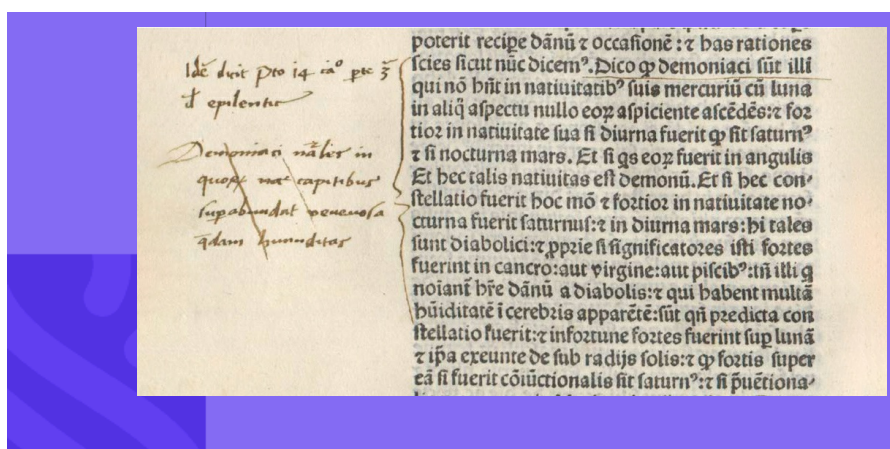 Idē dicit Pto 14 cāº ptc ʒ̄
đ epilentic
Demoniaci nāles in
quorʒ nāt capitibus
supabundat venenosa
q̄dam humiditas
poterit recipe dānū ⁊ occasionē : ⁊ has rationes
scies sicut nūc dicemꝰ. Dico ꝙ demoniaci sūt illi
qui nō hn̄t in natiuitatibꝰ suis mercuriū cū luna
in aliq̄ aspectu nullo eoꝝ aspiciente ascēdēs: ⁊ for
tior in natiuitate sua si diurna fuerit ꝙ sit saturnꝰ
⁊ si nocturna mars. Et si q̄s eoꝝ fuerit in angulis
Et hec talis natiuitas est demonū. Et si hec con-
stellatio fuerit hoc mō ⁊ fortior in natiuitate no-
cturna fuerit saturnus: ⁊ in diurna mars: hi tales
sunt diabolici: ⁊ ꝓprie si significatores isti fortes
fuerint in cancro: aut virgine: aut piscibꝰ: tn̄ illi q
noiant̄ hr̄e dānū a diabolis: ⁊ qui habent multā
hūiditatē ī cerebris apparētē: sūt qn̄ predicta con
stellatio fuerit: ⁊ infortune fortes fuerint suꝑ lunā
⁊ ip̄a exeunte de sub radijs solis: ⁊ ꝙ fortis super
eā si fuerit cōiūctionalis sit saturnꝰ: ⁊ si p̄uētiona-